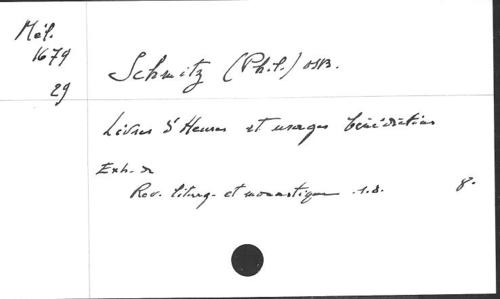 Mél.
1679
29
Schmitz (Ph.) OSB.
Livres d'Heures et usages bénédictins
Extr. de
Rev. liturg. et monastique s.d. 8°